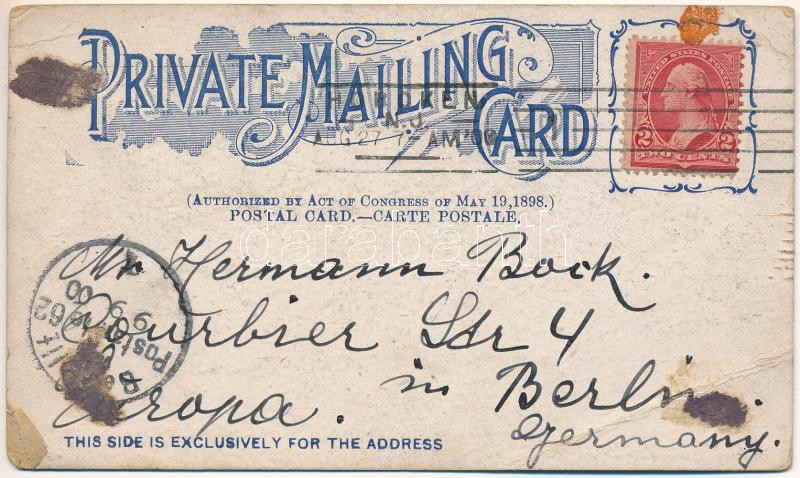 PRIVATE MAILING CARD
UNITED STATES POSTAGE
2 2
TWO CENTS
HOBOKEN,
N.J.
AUG 27 7 AM '00
(AUTHORIZED BY ACT OF CONGRESS OF MAY 19, 1898.)
POSTAL CARD.—CARTE POSTALE.
darabanth
Mr Hermann Bock.
Courbier Str 4
Europa. in Berlin.
Germany.
9 9 00
THIS SIDE IS EXCLUSIVELY FOR THE ADDRESS